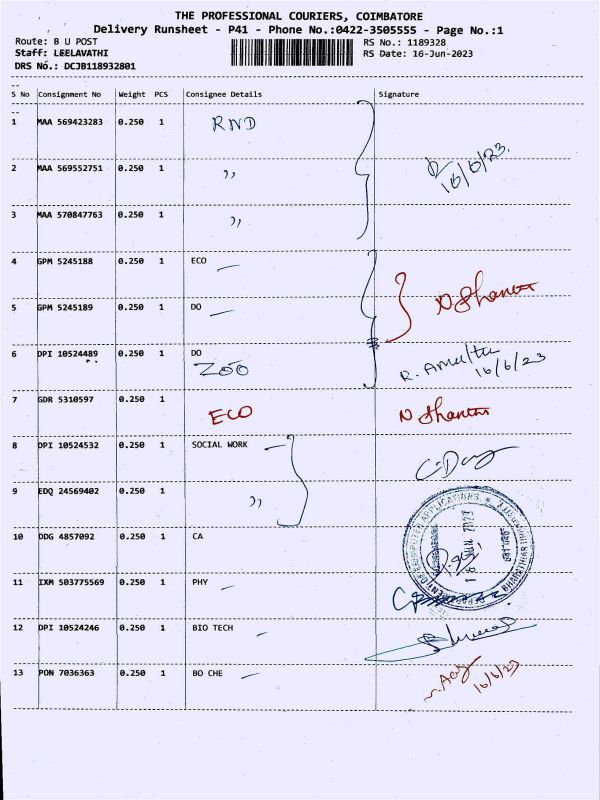 THE PROFESSIONAL COURIERS, COIMBATORE
Delivery Runsheet - P41 - Phone No.:0422-3505555 - Page No.:1
Route: B U POST RS No.: 1189328
Staff: LEELAVATHI RS Date: 16-Jun-2023
DRS No.: DCJB118932801
S No Consignment No Weight PCS Consignee Details Signature
1 MAA 569423283 0.250 1 RND
2 MAA 569552751 0.250 1 ,, 16/6/23.
3 MAA 570847763 0.250 1 ,,
4 GPM 5245188 0.250 1 ECO
N Shanthi
5 GPM 5245189 0.250 1 DO
6 DPI 10524489 0.250 1 DO
ZOO R. Amutha 16/6/23
7 GDR 5310597 0.250 1 ECO N Shanthi
8 DPI 10524532 0.250 1 SOCIAL WORK
9 EDQ 24569402 0.250 1 ,,
10 DDG 4857092 0.250 1 CA
11 IXM 503775569 0.250 1 PHY
12 DPI 10524246 0.250 1 BIO TECH
13 PON 7036363 0.250 1 BO CHE 16/6/23